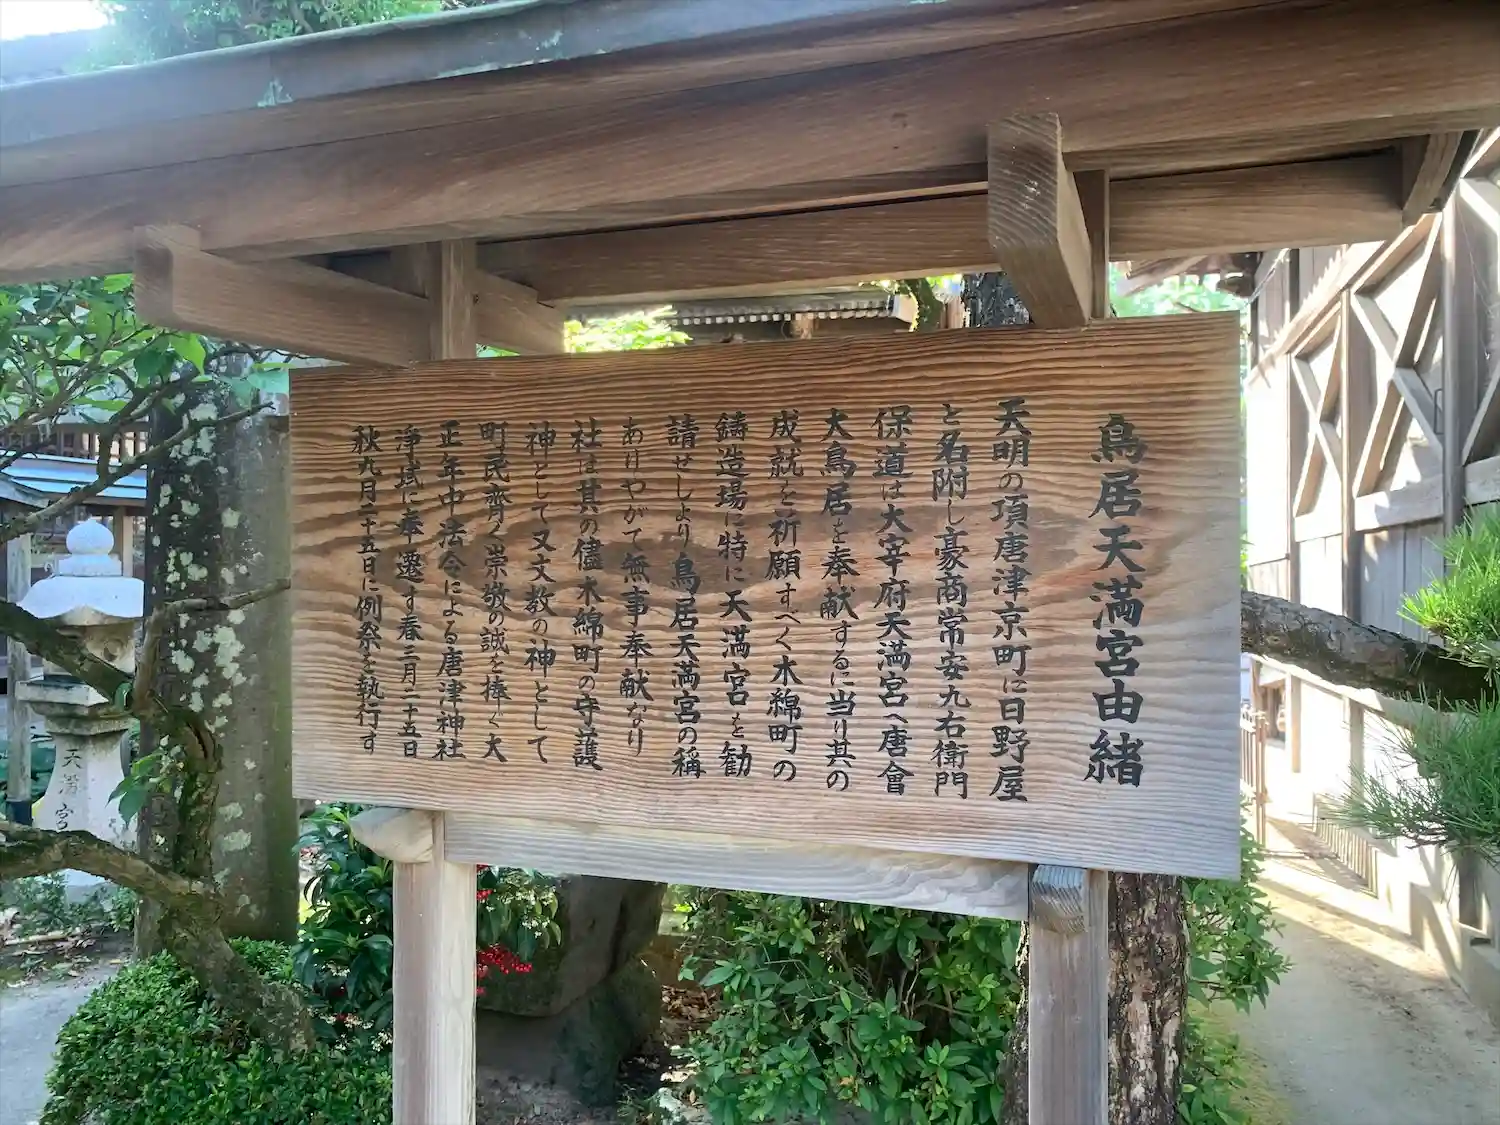 鳥居天満宮由緒
天明の頃唐津京町に日野屋
と名附し豪商常安九右衛門
保道は大宰府天満宮へ唐會
大鳥居を奉献するに当り其の
成就を祈願すべく木綿町の
鋳造場に特に天満宮を勧
請せしより鳥居天満宮の稱
ありやがて無事奉献なり
社は其の儘木綿町の守護
神として又文教の神として
町民齊く崇敬の誠を捧ぐ大
正年中法令による唐津神社
淨域に奉遷す春三月二十五日
秋九月二十五日に例祭を執行す
天満宮